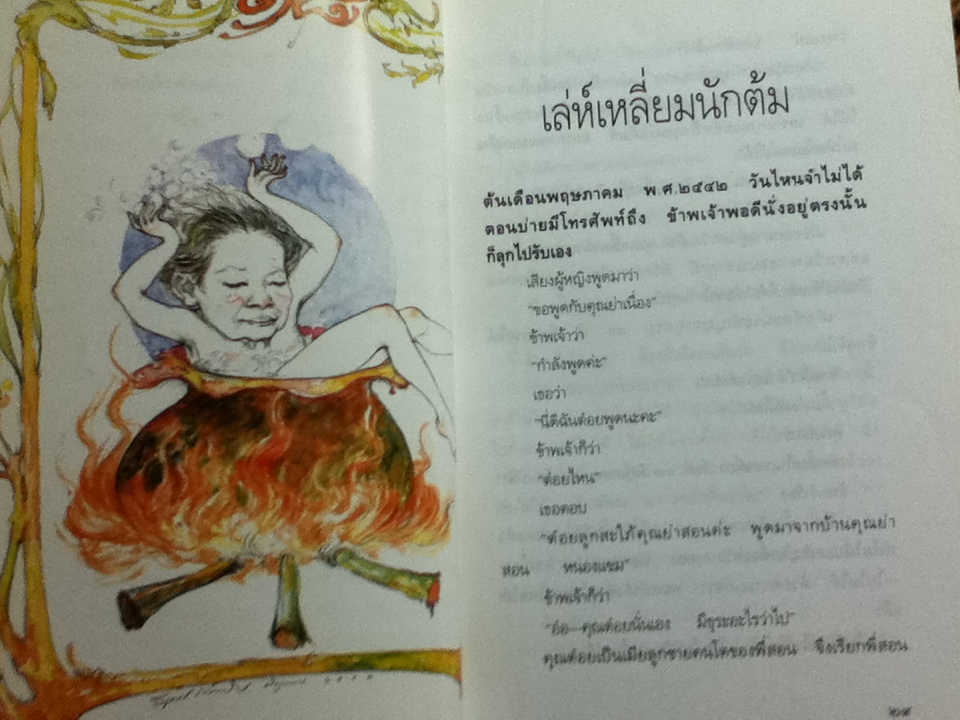 เล่ห์เหลี่ยมนักต้ม
ต้นเดือนพฤษภาคม พ.ศ.๒๕๔๒ วันไหนจำไม่ได้
ตอนบ่ายมีโทรศัพท์ถึง ข้าพเจ้าพอดีนั่งอยู่ตรงนั้น
ก็ลุกไปรับเอง
เสียงผู้หญิงพูดมาว่า
"ขอพูดกับคุณย่าเนื่อง"
ข้าพเจ้าว่า
"กำลังพูดค่ะ"
เธอว่า
"นี่ดิฉันต๋อยพูดนะคะ"
ข้าพเจ้าก็ว่า
"ต๋อยไหน"
เธอตอบ
"ต๋อยลูกสะใภ้คุณย่าสอนค่ะ พูดมาจากบ้านคุณย่า
สอน หนองแขม"
ข้าพเจ้าก็ว่า
"อ๋อ คุณต๋อยนั่นเอง มีธุระอะไรว่าไป"
คุณต๋อยเป็นเมียลูกชายคนโตของพี่สอน จึงเรียกพี่สอน
๒๙